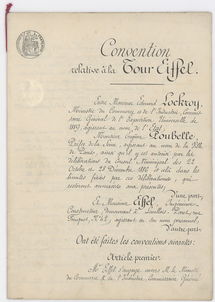 Convention
relative à la Tour Eiffel.
Entre Monsieur Edouard Lockroy,
Ministre du Commerce et de l'Industrie, Commissaire
Général de l'Exposition Universelle de
1889, agissant au nom de l'État
Monsieur Eugène Poubelle
Préfet de la Seine, agissant au nom de la Ville
de Paris, ainsi qu'il y est autorisé par les
délibérations du Conseil Municipal des 22
Octobre et 28 Décembre 1886 et dans les
limites fixées par ces délibérations, qui
resteront annexées aux présentes,
D'une part,
Et Monsieur Eiffel, Ingénieur-
Constructeur, demeurant à Levallois-Perret, rue
Fouquet, agissant en son nom
D'autre part,
Ont été faites les conventions suivantes:
Article premier.
Mr Eiffel s'engage envers M. le Ministre
du Commerce et de l'Industrie, Commissaire Général